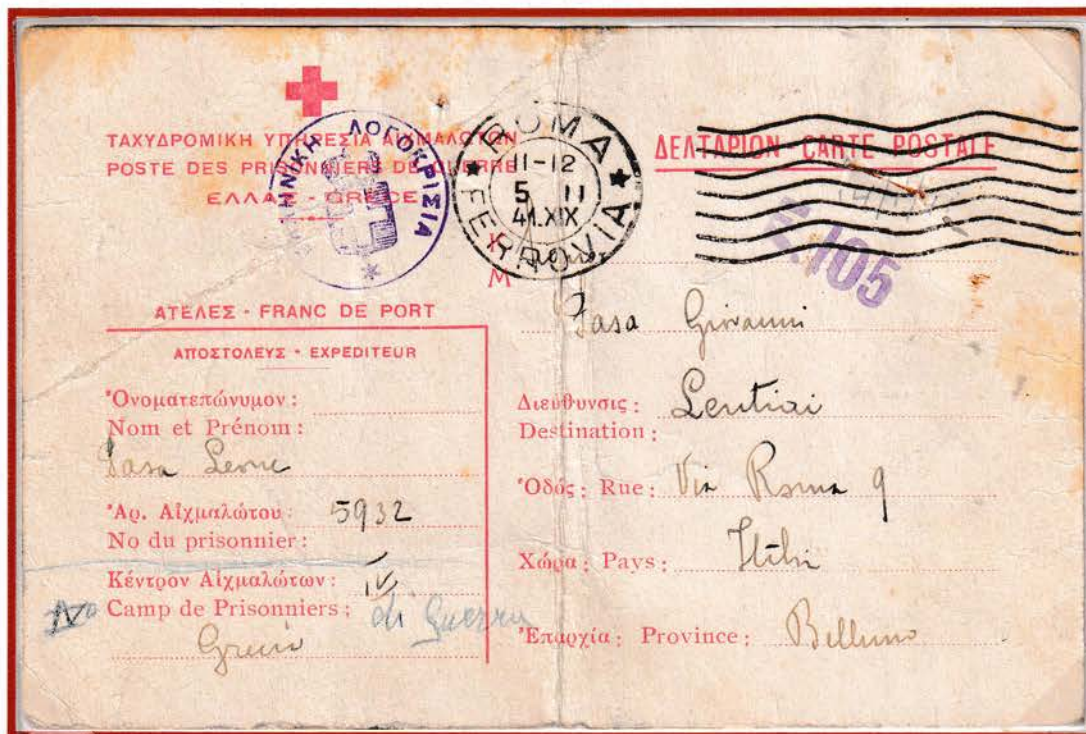 ΤΑΧΥΔΡΟΜΙΚΗ ΥΠΗΡΕΣΙΑ ΑΙΧΜΑΛΩΤΩΝ
POSTE DES PRISONNIERS DE GUERRE
ΕΛΛΑΣ - GRECE
ΛΟΓΟΚΡΙΣΙΑ
ROMA FERROVIA
11-12
5 II
41.XIX
ΔΕΛΤΑΡΙΟΝ CARTE POSTALE
105
M
ΑΤΕΛΕΣ - FRANC DE PORT
ΑΠΟΣΤΟΛΕΥΣ - EXPEDITEUR
Ὀνοματεπώνυμον :
Nom et Prénom :
Leone
Ἀρ. Αἰχμαλώτου : 5932
No du prisonnier :
Κέντρον Αἰχμαλώτων : IV
Camp de Prisonniers : di Guerra
Grecia
Giovanni
Διεύθυνσις : Lentiai
Destination :
Ὁδός : Rue : Via Roma 9
Χώρα : Pays :
Ἐπαρχία : Province : Belluno